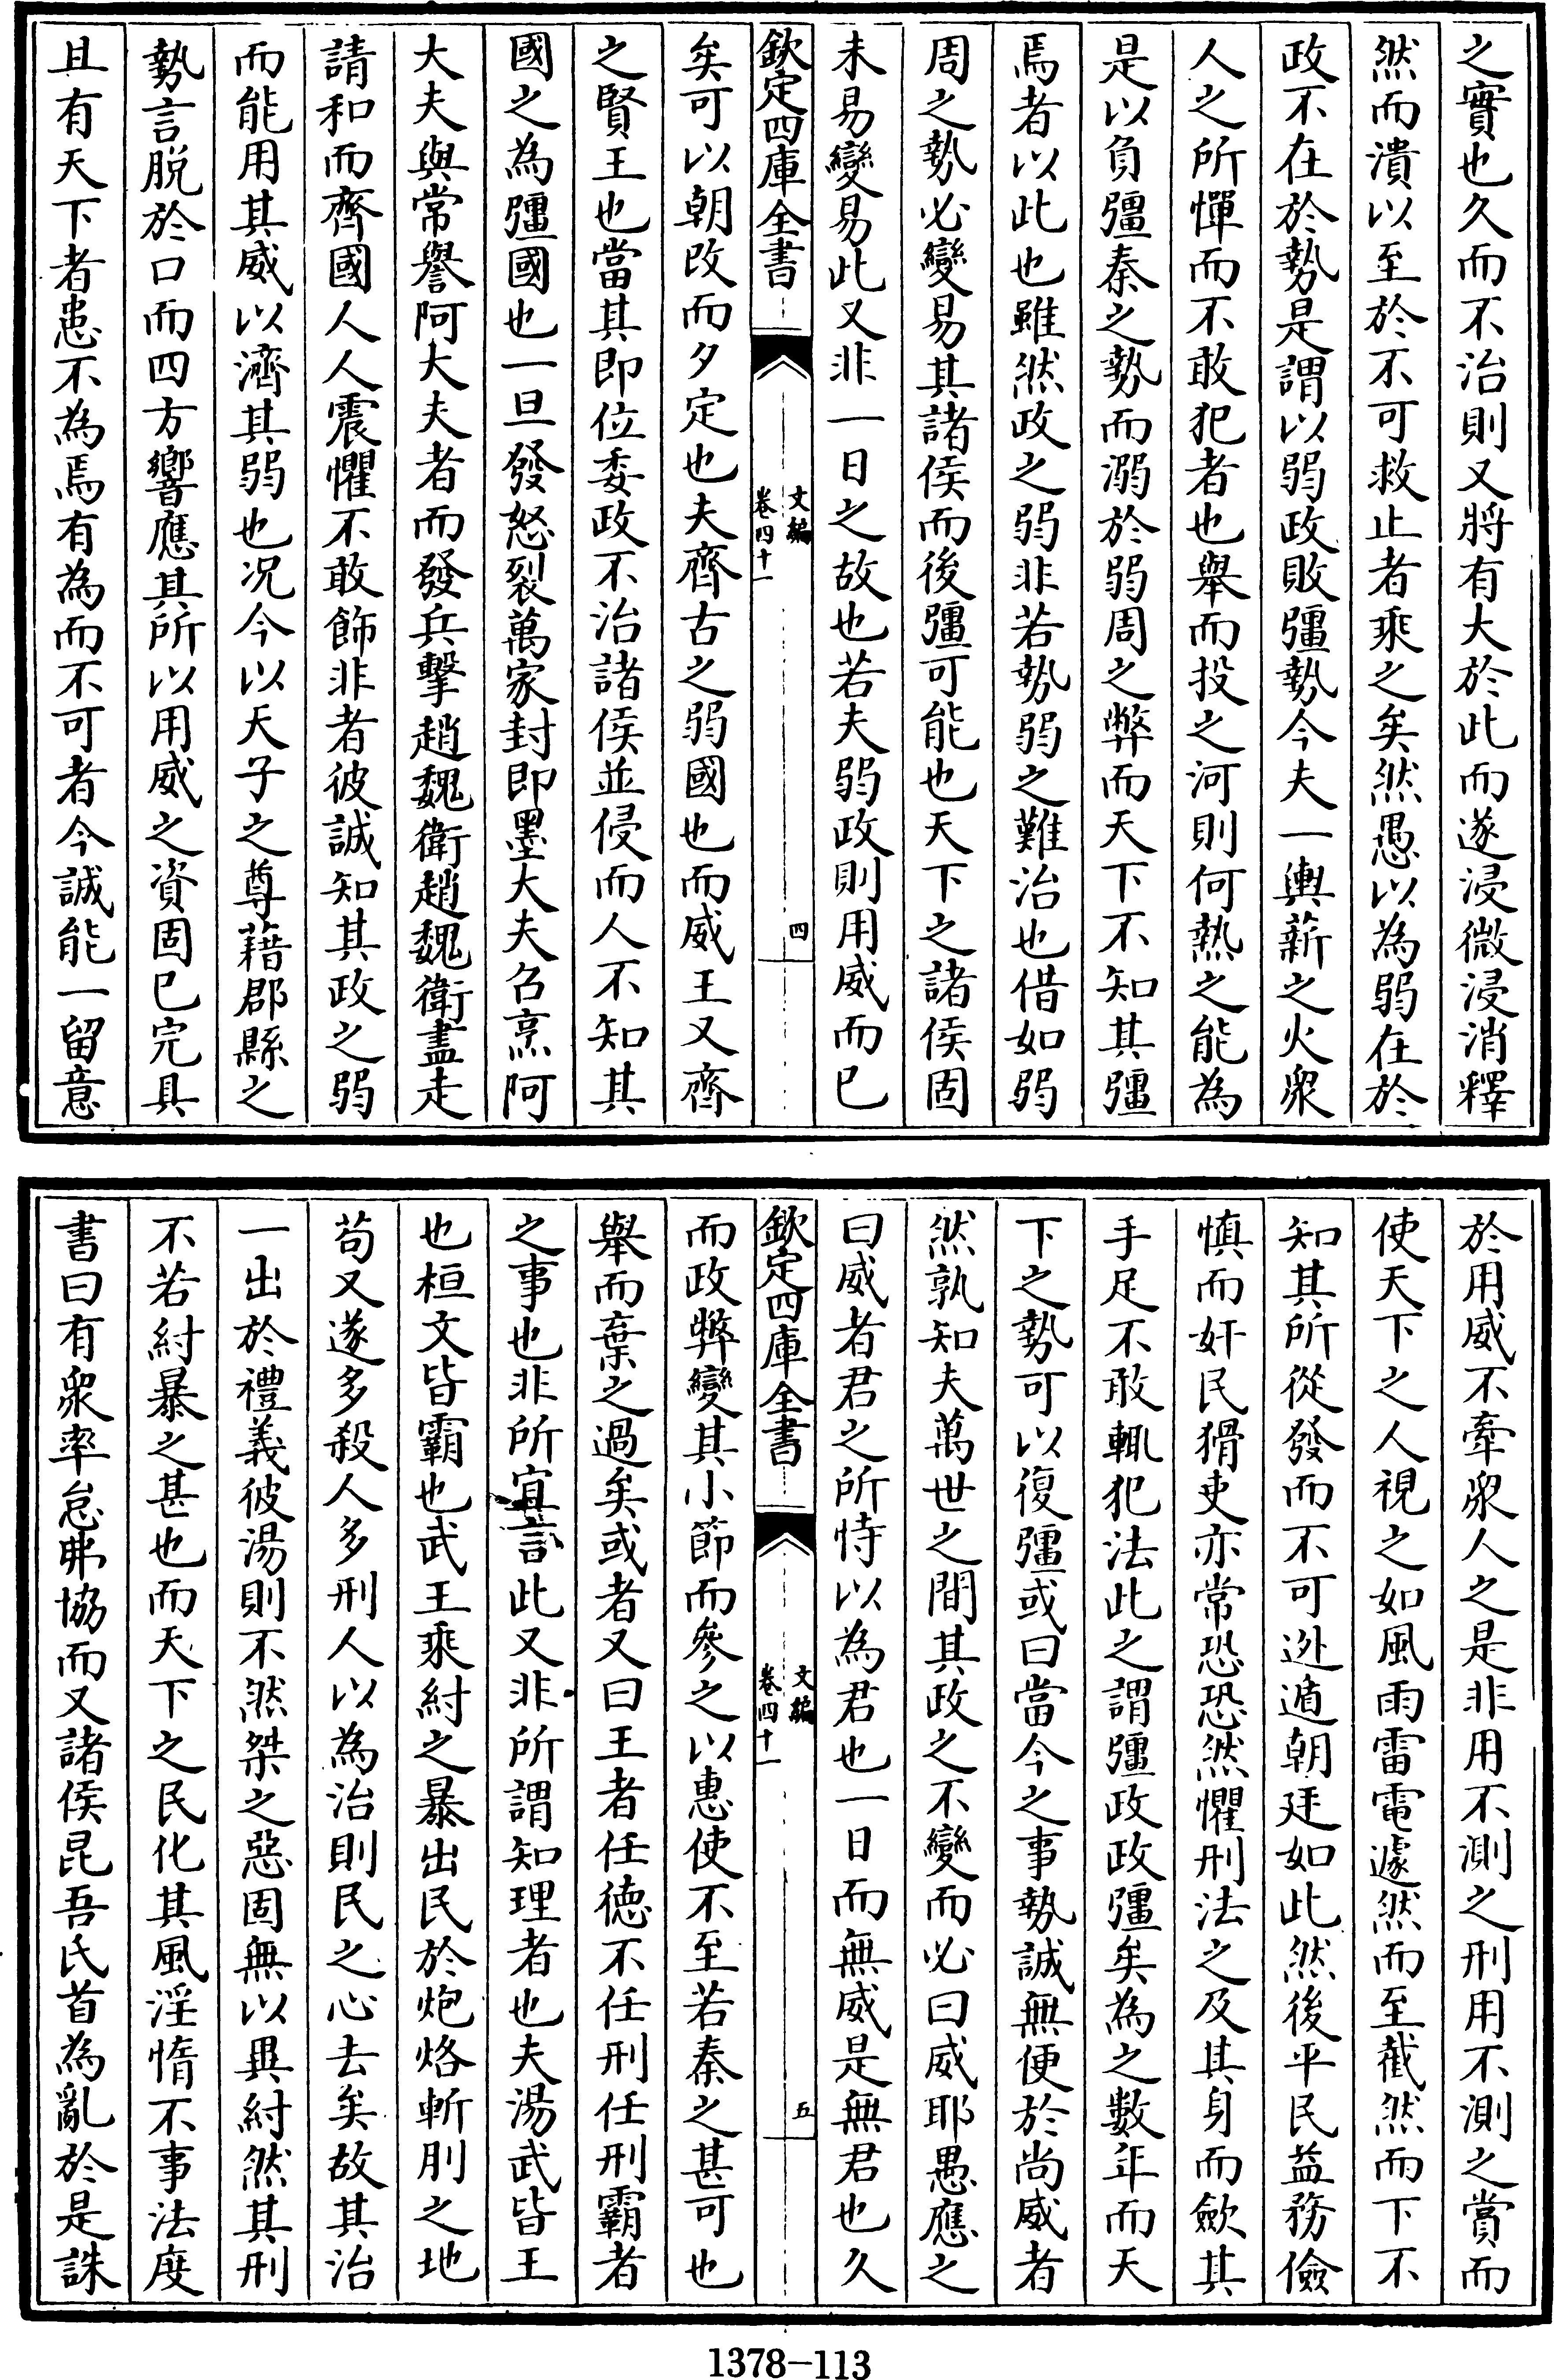 之實也久而不治則又將有大於此而遂浸微浸消釋
然而潰以至於不可救止者乘之矣然愚以為弱在於
政不在於勢是謂以弱政敗彊勢今夫一輿薪之火衆
人之所憚而不敢犯者也舉而投之河則何熱之能為
是以負彊秦之勢而溺於弱周之弊而天下不知其彊
焉者以此也雖然政之弱非若勢弱之難治也借如弱
周之勢必變易其諸侯而後彊可能也天下之諸侯固
未易變易此又非一日之故也若夫弱政則用威而已
欽定四庫全書
文編
卷四十一
四
矣可以朝改而夕定也夫齊古之弱國也而威王又齊
之賢王也當其即位委政不治諸侯並侵而人不知其
國之為彊國也一旦發怒裂萬家封即墨大夫召烹阿
大夫與常譽阿大夫者而發兵擊趙魏衛趙魏衛盡走
請和而齊國人人震懼不敢飾非者彼誠知其政之弱
而能用其威以濟其弱也况今以天子之尊藉郡縣之
勢言脫於口而四方響應其所以用威之資固已完具
且有天下者患不為焉有為而不可者今誠能一留意
於用威不牽衆人之是非用不測之刑用不測之賞而
使天下之人視之如風雨雷電遽然而至截然而下不
知其所從發而不可迯遁朝廷如此然後平民益務儉
慎而奸民猾吏亦常恐恐然懼刑法之及其身而歛其
手足不敢輒犯法此之謂彊政政彊矣為之數年而天
下之勢可以復彊或曰當今之事勢誠無便於尚威者
然孰知夫萬世之間其政之不變而必曰威耶愚應之
曰威者君之所恃以為君也一日而無威是無君也久
欽定四庫全書
文編
卷四十一
五
而政弊變其小節而參之以惠使不至若秦之甚可也
舉而棄之過矣或者又曰王者任德不任刑任刑霸者
之事也非所宜言此又非所謂知理者也夫湯武皆王
也桓文皆霸也武王乘紂之暴出民於炮烙斬刖之地
苟又遂多殺人多刑人以為治則民之心去矣故其治
一出於禮義彼湯則不然桀之惡固無以異紂然其刑
不若紂暴之甚也而天下之民化其風淫惰不事法度
書曰有衆率怠弗協而又諸侯昆吾氏首為亂於是誅
1378—113